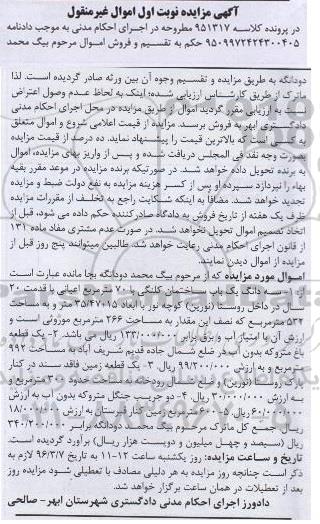 آگهی مزایده نوبت اول اموال غیرمنقول
در پرونده کلاسه ۹۵۱۳۱۷ مطروحه در اجرای احکام مدنی به موجب دادنامه
۹۵۰۹۹۷۲۴۲۴۳۰۰۴۰۵ حکم به تقسیم و فروش اموال مرحوم بیگ محمد
دودانگه به طریق مزایده و تقسیم وجوه آن بین ورثه صادر گردیده است. لذا
ماترک از طریق کارشناس ارزیابی شده؛ اینک به لحاظ عدم وصول اعتراض
نسبت به ارزیابی مقرر گردید اموال از طریق مزایده در محل اجرای احکام مدنی
دادگستری ابهر به فروش برسد. مزایده از قیمت اعلامی شروع و اموال متعلق
به کسی است که بالاترین قیمت را پیشنهاد نماید. ده درصد از قیمت مزایده
بصورت وجه نقد فی المجلس دریافت شده و پس از واریز بهای مزایده، اموال
به برنده تحویل داده خواهد شد. در صورتیکه برنده مزایده در موعد مقرر بقیه
بهاء را نپردازد سپرده او پس از کسر هزینه مزایده به نفع دولت ضبط و مزایده
تجدید خواهد شد. مضافا به اینکه شکایت راجع به تخلف از مقررات مزایده
ظرف یک هفته از تاریخ فروش به دادگاه صادرکننده حکم داده می شود، قبل از
اتخاذ تصمیم اموال تحویل نخواهد شد. در صورت عدم مشتری مفاد ماده ۱۳۱
از قانون اجرای احکام مدنی رعایت خواهد شد. طالبین میتوانند پنج روز قبل از
مزایده از اموال دیدن نمایند.
اموال مورد مزایده که از مرحوم بیگ محمد دودانگه بجا مانده عبارت است
از ۱- سه دانگ یک باب ساختمان کلنگی با ۷۰ مترمربع اعیانی با قدمت ۲۰
سال در داخل روستا (نورین) کوچه نور با ابعاد ۳۵/۴۷*۱۵ متر و به مساحت
۵۳۲ مترمربع که نصف این مقدار به مساحت ۲۶۶ مترمربع موروثی است و
ارزش آن با امتیاز آب و برق برابر ۱۳۳/۰۰۰/۰۰۰ ریال می باشد. ۲- یک قطعه
باغ متروکه بدون آب در ضلع شمال جاده قدیم شریف آباد به مساحت ۹۹۲
مترمربع و به ارزش ۹۹/۲۰۰/۰۰۰ ریال. ۳- یک قطعه زمین فاقد سند در کنار
پارک روستا (نورین) و ضلع شمال رودخانه به مساحت حدود ۳۰۰مترمربع و
به ارزش ۳۰/۰۰۰/۰۰۰ ریال. ۴- دو جریب جنگل متروکه بدون آب به ارزش
۶۰/۰۰۰/۰۰۰ ریال. ۵- ۶۰۰مترمربع زمین کنار قبرستان به ارزش ۱۸/۰۰۰/۰۰۰
ریال. جمع کل ماترک مرحوم بیگ محمد دودانگه برابر ۳۴۰/۲۰۰/۰۰۰
ریال (سیصد و چهل میلیون و دویست هزار ریال) برآورد گردیده است.
تاریخ و ساعت مزایده: روز یکشنبه ساعت ۱۲-۱۱ به تاریخ ۹۶/۳/۷ لازم به
ذکر است چنانچه روز مزایده به هر دلیلی مصادف با تعطیلی شود مزایده روز
بعد از تعطیلات در همان ساعت برگزار خواهد شد.
دادورز اجرای احکام مدنی دادگستری شهرستان ابهر - صالحی